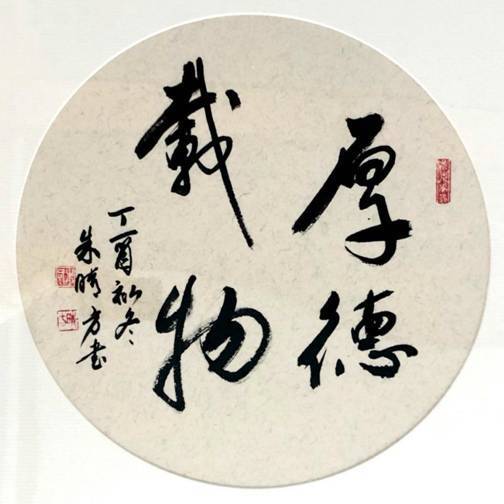 厚德
载物
丁酉初冬
朱晴方书